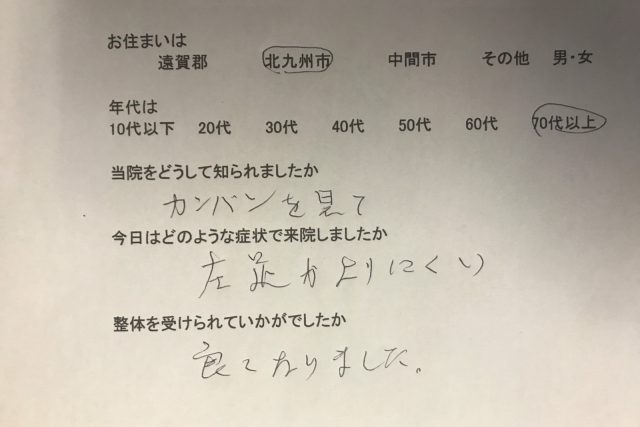 お住まいは
遠賀郡 北九州市 中間市 その他 男・女
年代は
10代以下 20代 30代 40代 50代 60代 70代以上
当院をどうして知られましたか
カンバンを見て
今日はどのような症状で来院しましたか
左足が上りにくい
整体を受けられていかがでしたか
良くなりました。